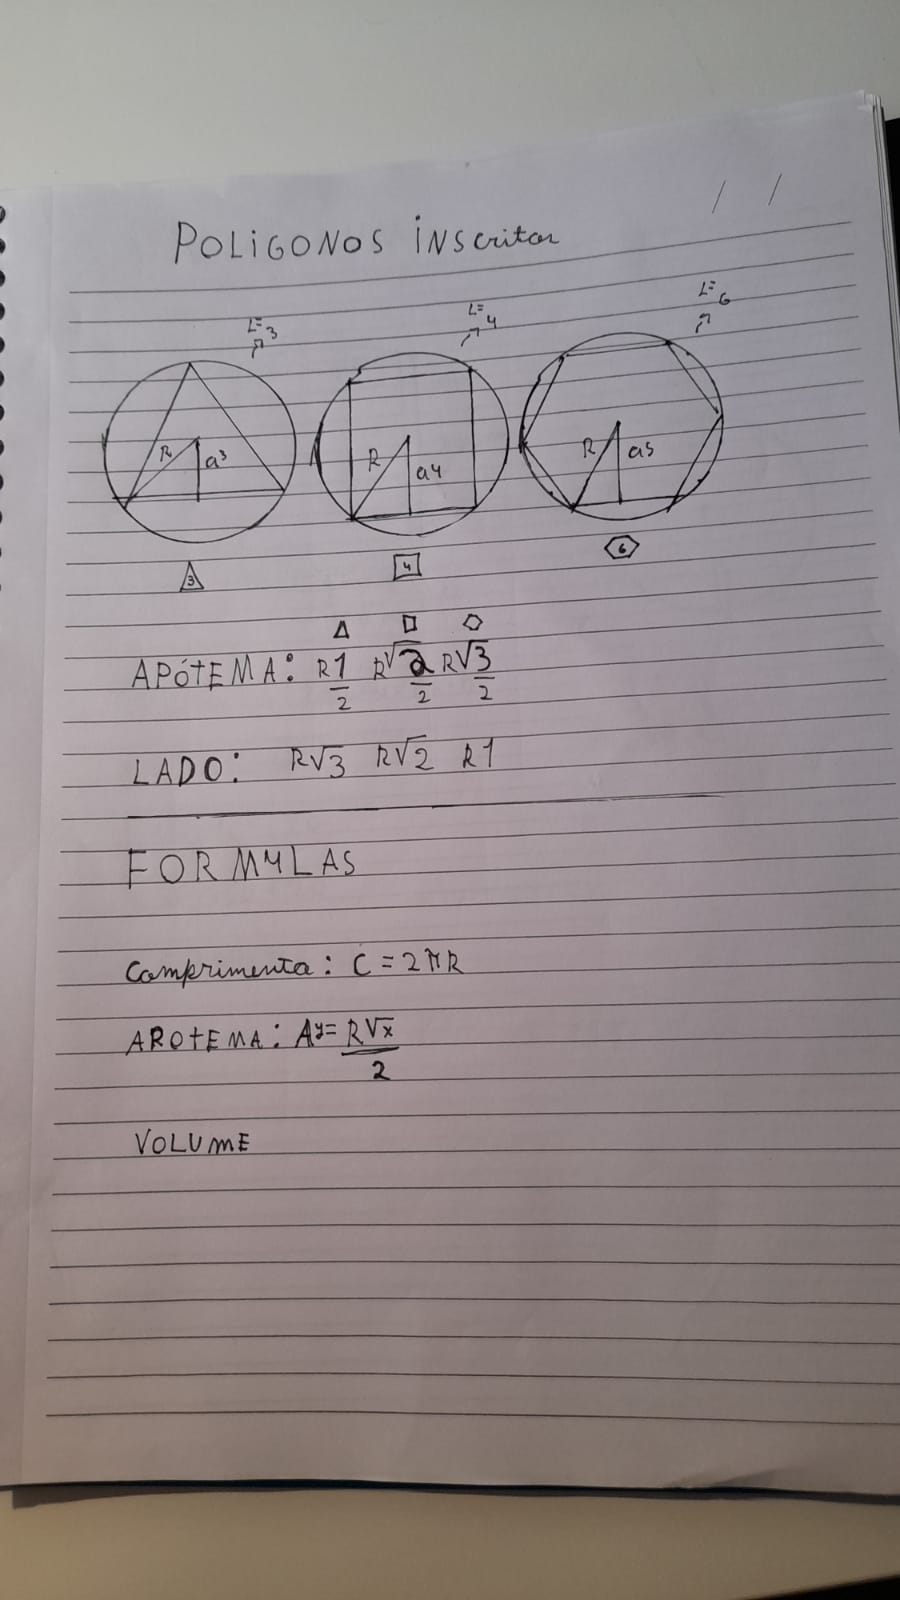 POLIGONOS INScritos
L=3 L=4 L=6
R a3 R a4 R a5
3 4 6
APÓTEMA: R1/2 R√2/2 R√3/2
LADO: R√3 R√2 R1
FORMULAS
Comprimento: C = 2πR
AROTEMA: Ay= R√x/2
VOLUME